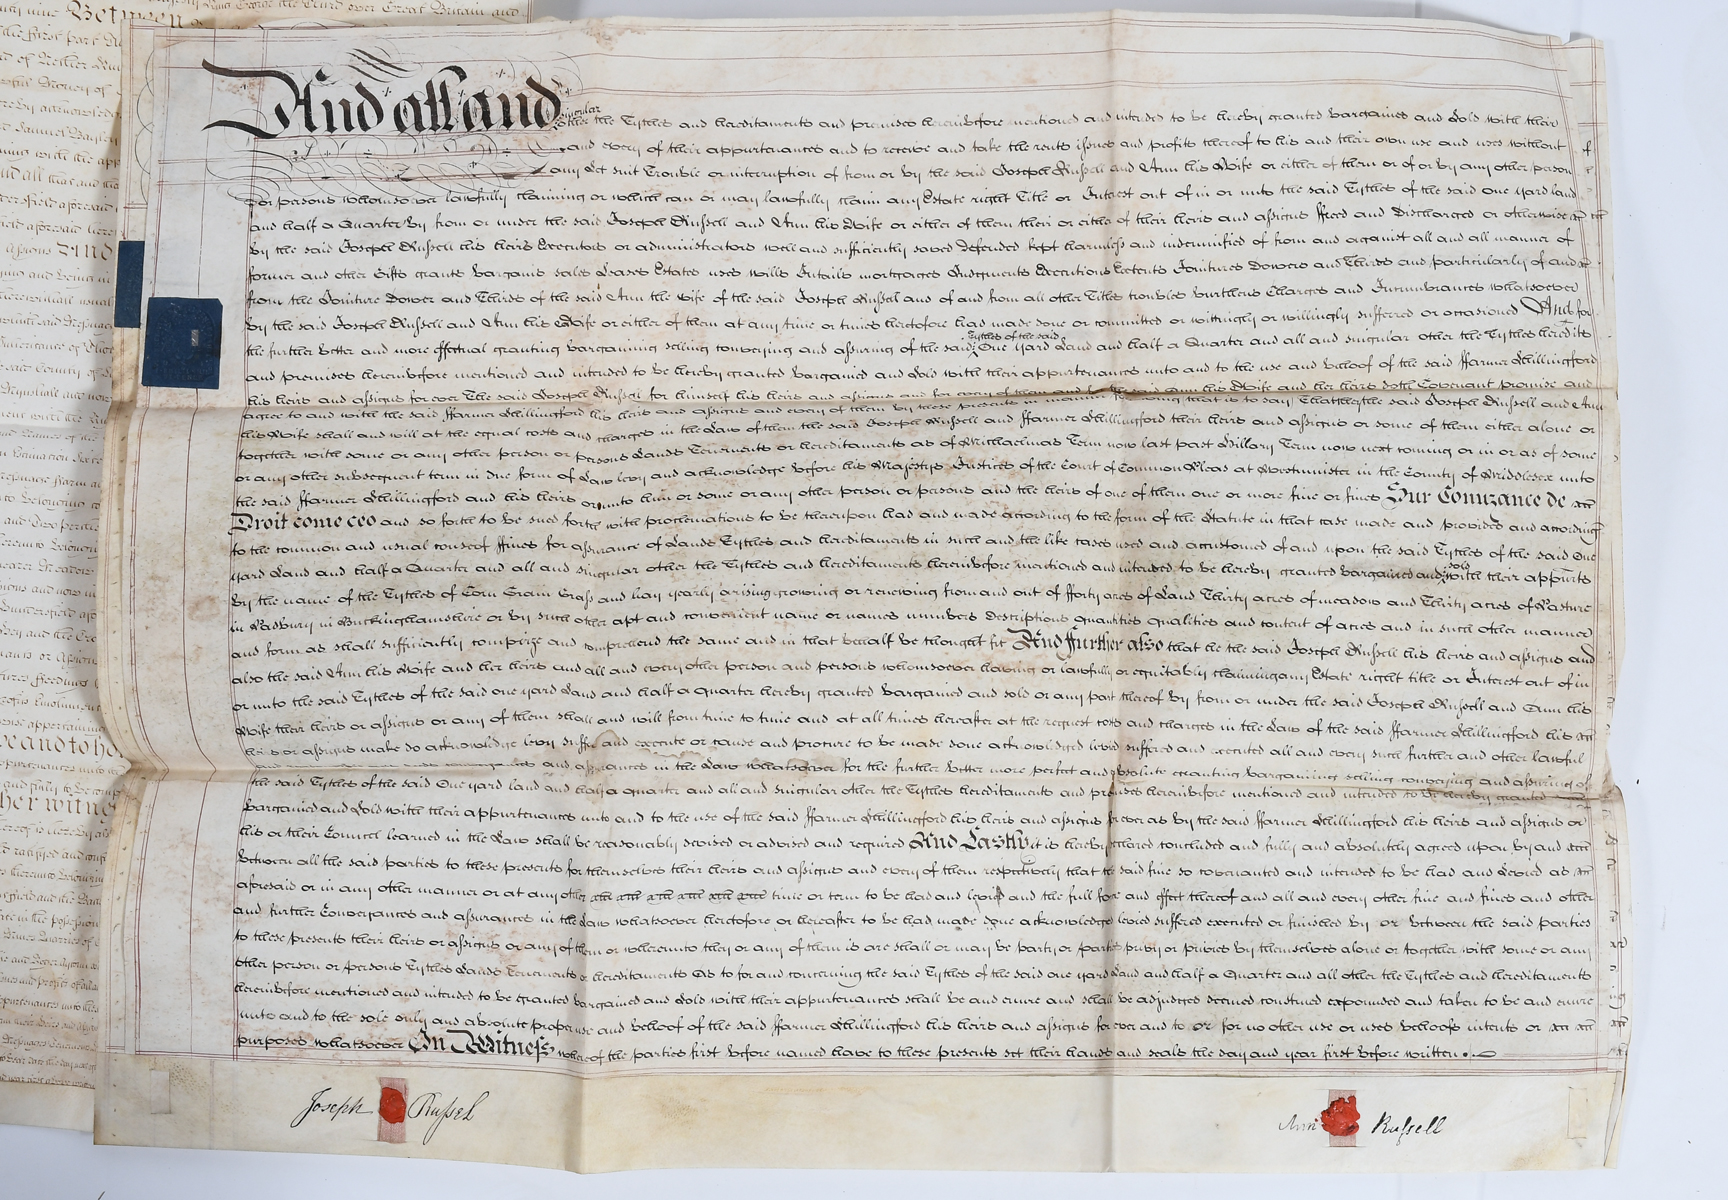 And all and singular other the Tythes and hereditaments and premises hereinbefore mentioned and intended to be hereby granted bargained and Sold with their
and every of their appurtenances and to receive and take the rents issues and profits thereof to his and their own use and uses without
any Let suit Trouble or interruption of from or by the said Joseph Russell and Ann his Wife or either of them or of or by any other person
or persons whomsoever lawfully claiming or which can or may lawfully claim any Estate right Title or Interest out of in or unto the said Tythes of the said one yard land
and half a Quarter by from or under the said Joseph Russell and Ann his Wife or either of them their or either of their heirs and assigns ffreed and Discharged or otherwise
by the said Joseph Russell his heirs Executors or administrators well and sufficiently saved defended kept harmless and indemnified of from and against all and all manner of
former and other Gifts grants bargains sales Leases Estates uses wills Entails mortgages Judgments Executions Extents Jointures Dowers and Thirds and particularly of and
from the Jointure Dower and Thirds of the said Ann the wife of the said Joseph Russell and of and from all other Titles troubles burthens Charges and Incumbrances whatsoever
by the said Joseph Russell and Ann his Wife or either of them at any time or times heretofore had made done or committed or wittingly or willingly suffered or occasioned And for
the further better and more effectual granting bargaining selling conveying and assuring of the said Tythes of the said One yard Land and half a Quarter and all and singular other the Tythes heredits
and premises hereinbefore mentioned and intended to be hereby granted bargained and Sold with their appurtenances unto and to the use and behoof of the said ffarmer Shillingford
his heirs and assigns for ever The said Joseph Russell for himself his heirs and assigns and for every of them and for the said Ann his Wife and her heirs doth Covenant promise and
agree to and with the said ffarmer Shillingford his heirs and assigns and every of them by these presents in manner following that is to say That the said Joseph Russell and Ann
his Wife shall and will at the equal costs and charges in the Law of them the said Joseph Russell and ffarmer Shillingford their heirs and assigns or some of them either alone or
together with some or any other person or persons Lands Tenements or hereditaments as of Michaelmas Term now last past Hillary Term now next coming or in or as of some
or any other subsequent term in due form of Law levy and acknowledge before his Majestys Justices of the Court of Common Pleas at Westminster in the County of Middlesex unto
the said ffarmer Shillingford and his heirs or unto him or some or any other person or persons and the heirs of one of them one or more fine or fines Sur Conuzance de
Droit come ceo and so forth to be sued forth with proclamations to be thereupon had and made according to the form of the Statute in that case made and provided and according
to the common and usual course of ffines for assurance of Lands Tythes and hereditaments in such and the like cases used and accustomed of and upon the said Tythes of the said One
yard Land and half a Quarter and all and singular other the Tythes and hereditaments hereinbefore mentioned and intended to be hereby granted bargained and sold with their appurts
by the name of the Tythes of Corn Grain Grass and hay yearly arising growing or renewing from and out of fforty acres of Land Thirty acres of meadow and Thirty acres of Pasture
in Padbury in Buckinghamshire or by such other apt and convenient name or names numbers descriptions quantities qualities and content of acres and in such other manner
and form as shall sufficiently comprize and comprehend the same and in that behalf be thought fit And ffurther also that he the said Joseph Russell his heirs and assigns and
also the said Ann his Wife and her heirs and all and every other person and persons whomsoever having or lawfully or equitably claiming any Estate right title or Interest out of in
or unto the said Tythes of the said one yard Land and half a Quarter hereby granted bargained and sold or any part thereof by from or under the said Joseph Russell and Ann his
Wife their heirs or assigns or any of them shall and will from time to time and at all times hereafter at the request costs and charges in the Law of the said ffarmer Shillingford his
heirs or assigns make do acknowledge levy suffer and execute or cause and procure to be made done acknowledged levied suffered and executed all and every such further and other lawful
and assurances in the Law whatsoever for the further better more perfect and absolute granting bargaining selling conveying and assuring of
the said Tythes of the said One yard land and half a quarter and all and singular other the Tythes hereditaments and premises hereinbefore mentioned and intended to be hereby granted
bargained and Sold with their appurtenances unto and to the use of the said ffarmer Shillingford his heirs and assigns forever as by the said ffarmer Shillingford his heirs and assigns or
his or their Council learned in the Law shall be reasonably devised or advised and required And Lastly it is hereby declared concluded and fully and absolutely agreed upon by and
between all the said parties to these presents for themselves their heirs and assigns and every of them respectively that the said fine so covenanted and intended to be had and Levied as
aforesaid or in any other manner or at any other time or term to be had and levied and the full force and effect thereof and all and every other fine and fines and other
and further Conveyances and assurances in the Law whatsoever heretofore or hereafter to be had made done acknowledged levied suffered executed or finished by or between the said parties
to these presents their heirs or assigns or any of them or whereunto they or any of them is are shall or may be party or parties privy or privies by themselves alone or together with some or any
other person or persons Tythes Lands Tenements or hereditaments As to for and concerning the said Tythes of the said one yard Land and half a Quarter and all other the Tythes and hereditaments
hereinbefore mentioned and intended to be granted bargained and Sold with their appurtenances shall be and enure and shall be adjudged deemed construed expounded and taken to be and enure
unto and to the sole only and absolute proper use and behoof of the said ffarmer Shillingford his heirs and assigns for ever and to or for no other use or uses behoofs intents or
purposes whatsoever In Witness whereof the parties first before named have to these presents set their hands and seals the day and year first before written.
Joseph Russel
Ann Russell